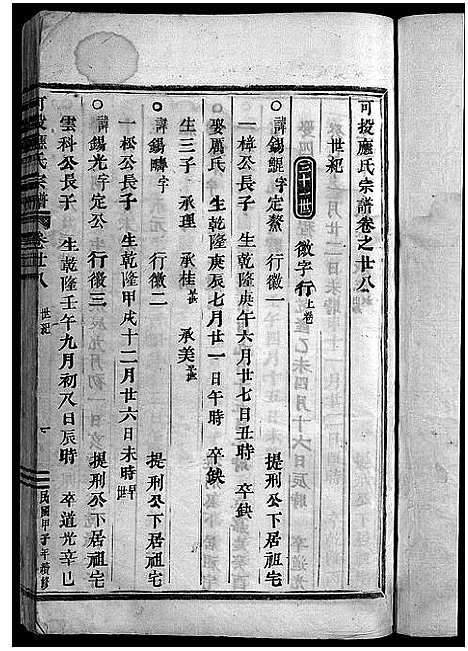 可投應氏宗譜卷之廿八
世紀
三十一世 徽字行 上卷
諱錫鯤字 定鰲 行徽一 提刑公下居祖宅
一樟公長子 生乾隆庚午六月廿七日丑時 卒缺
娶應氏 生乾隆庚辰七月廿一日午時 卒缺
生三子 承理 承桂 承美
諱錫疇字 行徽二 提刑公下居祖宅
一松公長子 生乾隆甲戌十二月廿六日未時
諱錫光字 定公 行徽三 提刑公下居祖宅
雲科公長子 生乾隆壬午九月初八日辰時 卒道光辛巳
可投應氏宗譜 卷廿八 世紀 一 民國甲子年續修